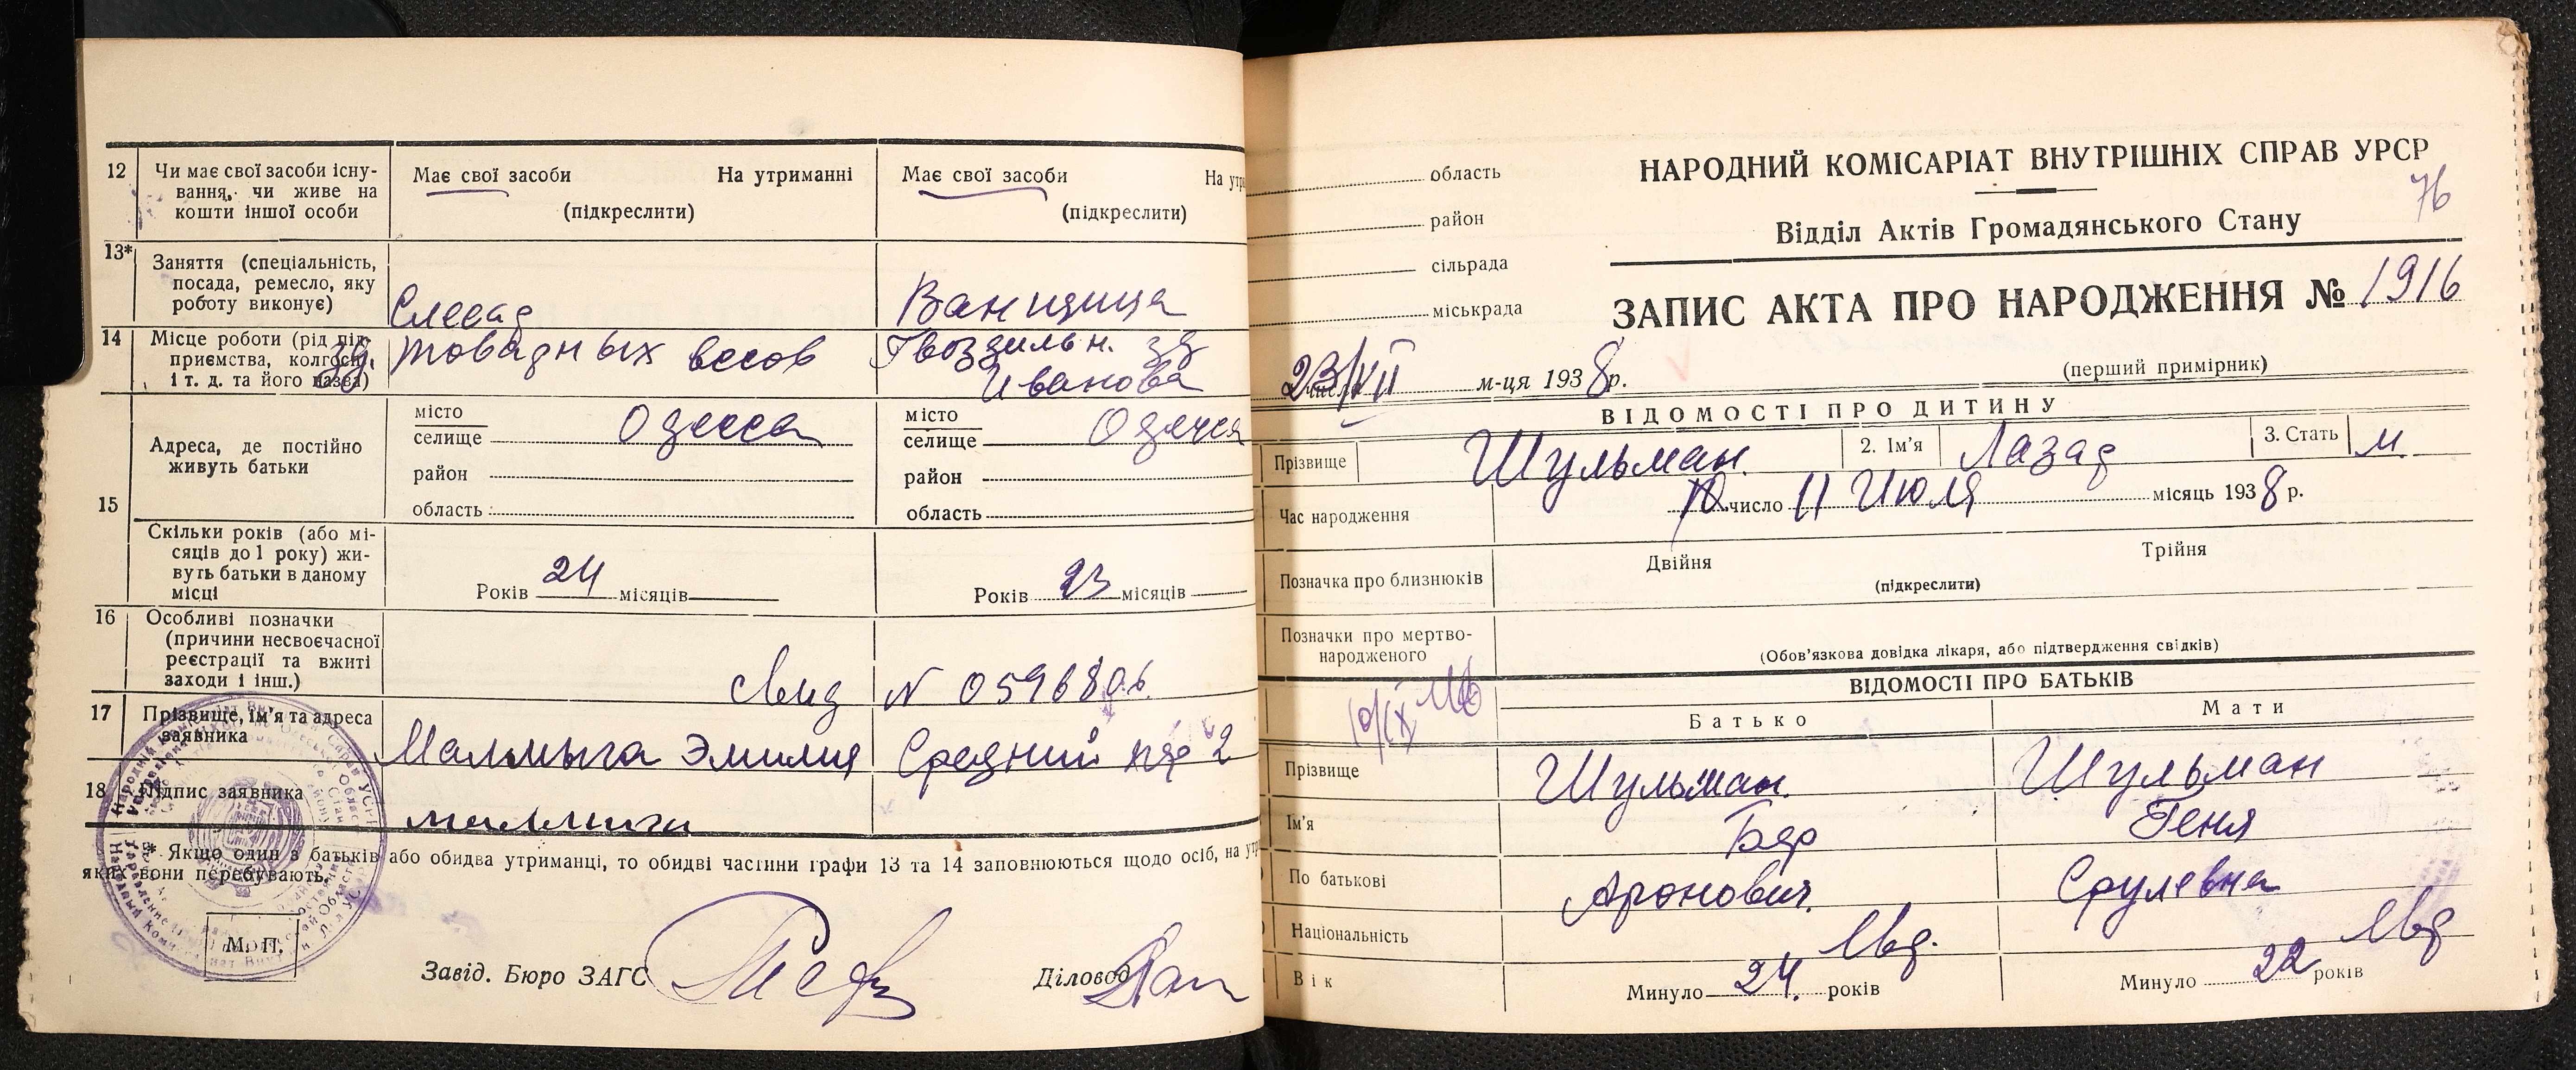 12 Чи має свої засоби існу-
вання, чи живе на
кошти іншої особи
Має свої засоби На утриманні
(підкреслити)
Має свої засоби На утри
(підкреслити)
13* Заняття (спеціальність,
посада, ремесло, яку
роботу виконує)
Слесар
Ванщица
14 Місце роботи (рід під-
приємства, колгоспу,
і т. д. та його назва)
зд товарных весов
Гвоздильн. зд
Иванова
15
Адреса, де постійно
живуть батьки
місто
селище Одесса
район
область
місто
селище Одесса
район
область
Скільки років (або мі-
сяців до 1 року) жи-
вуть батьки в даному
місці
Років 24 місяців
Років 23 місяців
16 Особливі позначки
(причини несвоєчасної
реєстрації та вжиті
заходи і інш.)
Свид N 0596806
17 Прізвище, ім'я та адреса
заявника
Малмыга Эмилия Средний пер 2
18 Підпис заявника
* Якщо один з батьків або обидва утриманці, то обидві частини графи 13 та 14 заповнюються щодо осіб, на ут
яких вони перебувають.
М. П.
Завід. Бюро ЗАГС
Діловод
область
район
сільрада
міськрада
НАРОДНИЙ КОМІСАРІАТ ВНУТРІШНІХ СПРАВ УРСР
76
Відділ Актів Громадянського Стану
ЗАПИС АКТА ПРО НАРОДЖЕННЯ № 1916
(перший примірник)
23/VII м-ця 1938 р.
ВІДОМОСТІ ПРО ДИТИНУ
Прізвище Шульман. 2. Ім'я Лазар 3. Стать м.
Час народження
10 число 11 Июля місяць 1938 р.
Позначка про близнюків
Двійня Трійня
(підкреслити)
Позначки про мертво-
народженого
(Обов'язкова довідка лікаря, або підтвердження свідків)
ВІДОМОСТІ ПРО БАТЬКІВ
Батько Мати
Прізвище Шульман. Шульман
Ім'я Бер Геня
По батькові Аронович. Срулевна
Національність Евр. Евр
Вік
Минуло 24. років
Минуло 22 років